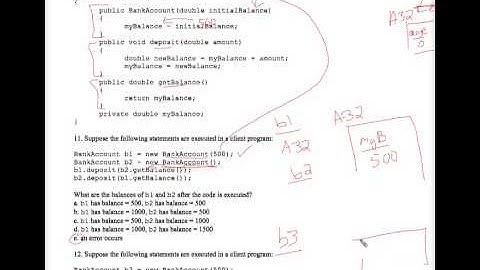 {
public BankAccount(double initialBalance)
{
500
myBalance = initialBalance;
}
public void deposit(double amount)
{
double newBalance = myBalance + amount;
myBalance = newBalance;
}
public double getBalance()
{
return myBalance;
}
private double myBalance;
}
11. Suppose the following statements are executed in a client program:
BankAccount b1 = new BankAccount(500);
BankAccount b2 = new BankAccount();
b1.deposit(b2.getBalance());
b2.deposit(b1.getBalance());
What are the balances of b1 and b2 after the code is executed?
a. b1 has balance = 500, b2 has balance = 500
b. b1 has balance = 1000, b2 has balance = 500
c. b1 has balance = 500, b2 has balance = 1000
d. b1 has balance = 1000, b2 has balance = 1500
e. an error occurs
12. Suppose the following statements are executed in a client program:
A32
0
b1
A32
b2
b3
A32
myB
500